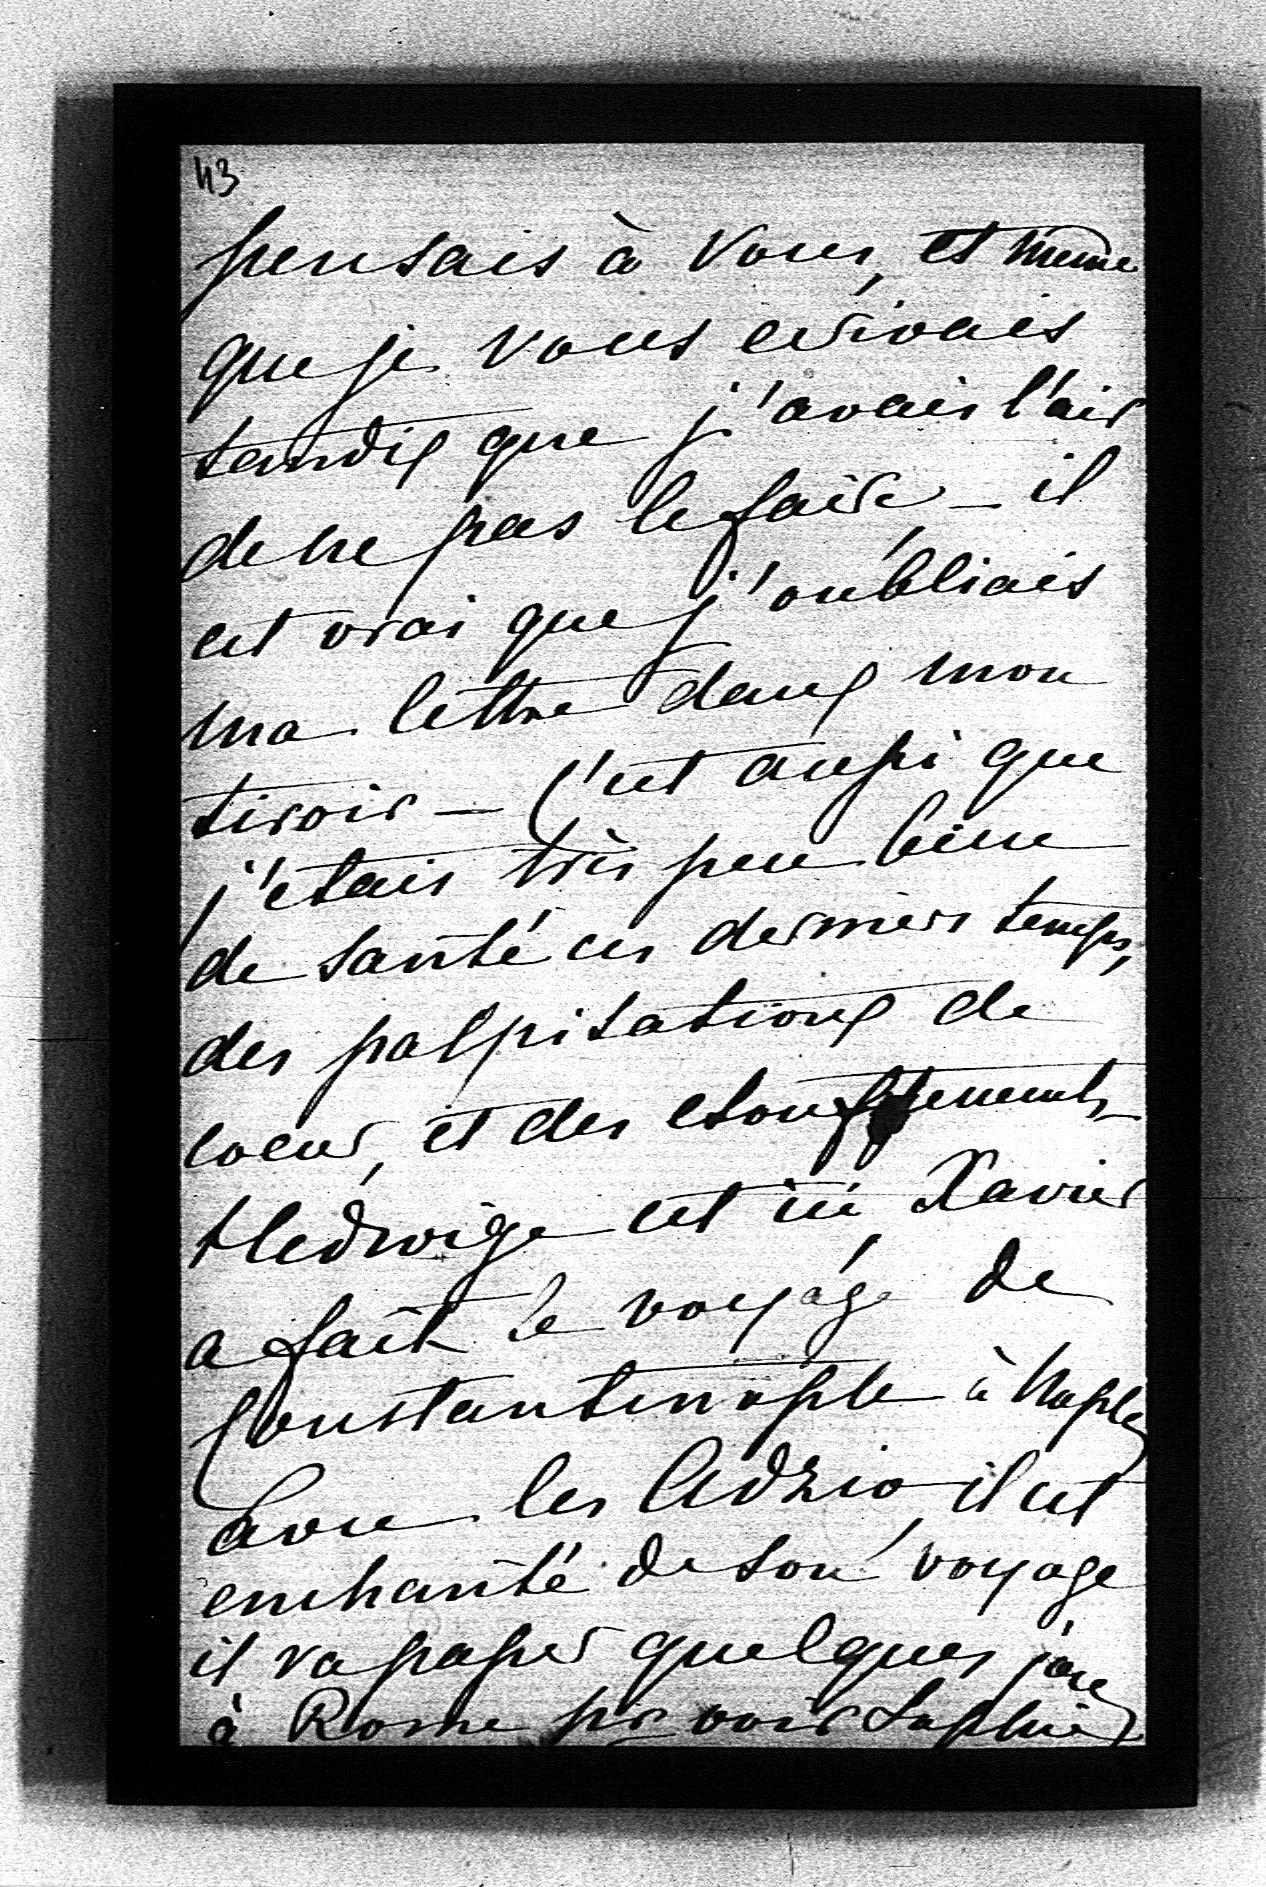 43
pensais à vous, et meme
que je vous ecrivais
tandis que j'avais l'air
de ne pas le faire – il
est vrai que j'oubliais
ma lettre dans mon
tiroir – C'est aussi que
j'etais très peu bien
de santé ces derniers temps,
des palpitations de
coeur, et des etouffements
Hedwige est ici, Xavier
a fait le voyage de
Constantinople à Naples
avec les Adzio il est
enchanté de son voyage
il va passer quelques jours
à Rome pr voir Sophie